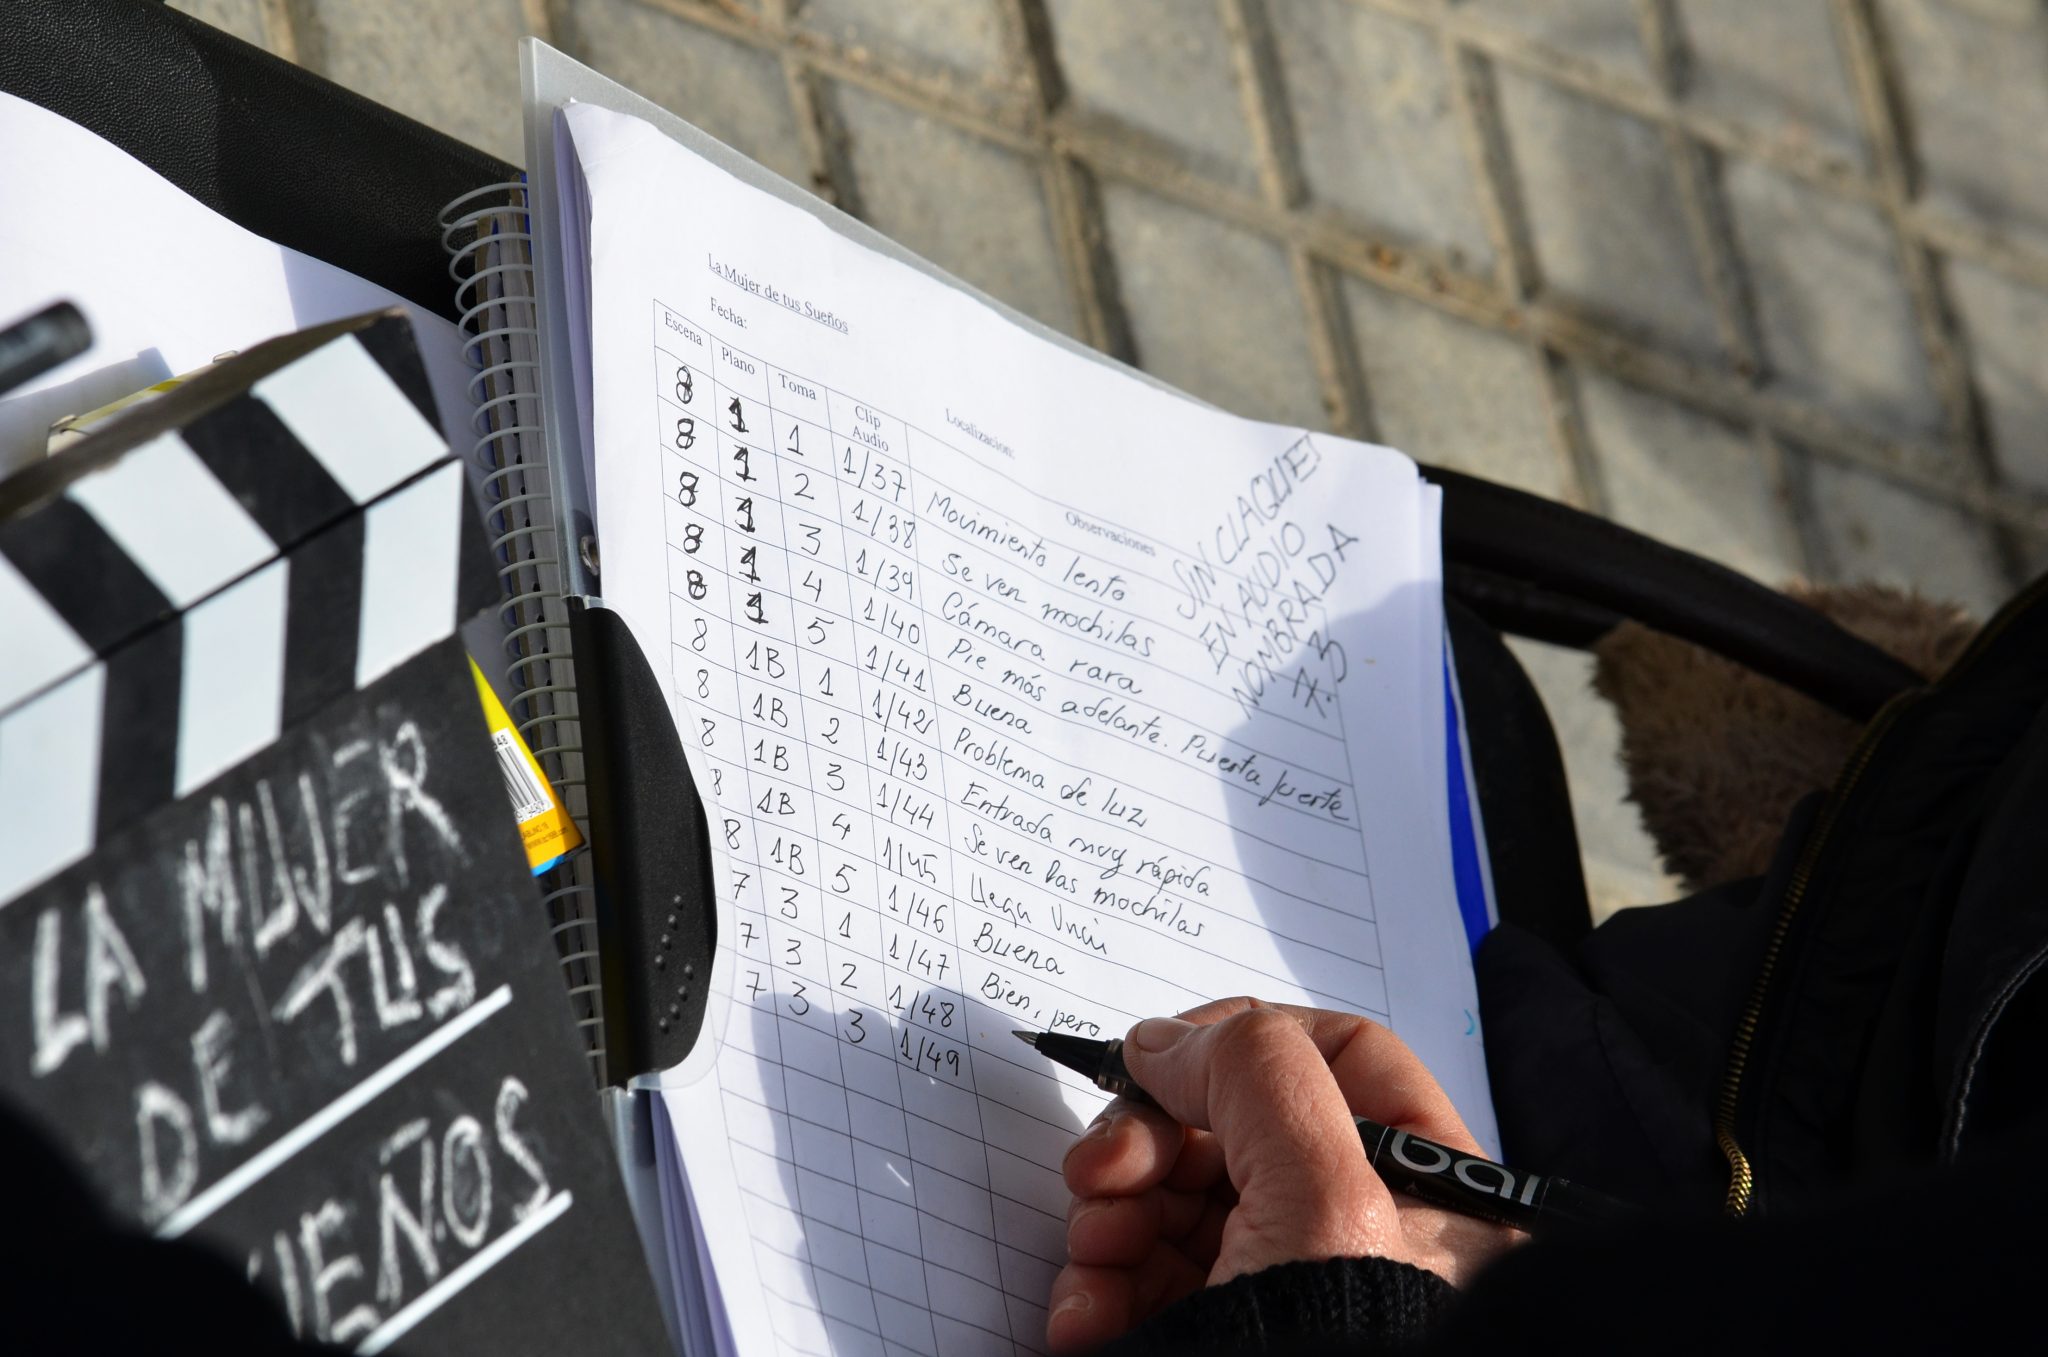 La Mujer de tus Sueños
Fecha:
Localizacion:
Escena Plano Toma Clip Audio Observaciones
8 1 1 1/37 Movimiento lento
8 1 2 1/38 Se ven mochilas
8 1 3 1/39 Cámara rara
8 1 4 1/40 Pie más adelante. Puerta fuerte
8 1 5 1/41 Buena
8 1B 1 1/42 Problema de luz
8 1B 2 1/43 Entrada muy rápida
8 1B 3 1/44 Se ven las mochilas
8 1B 4 1/45 Llega
8 1B 5 1/46 Buena
7 3 1 1/47 Bien, pero
7 3 2 1/48
7 3 3 1/49
SIN CLAQUE
EN AUDIO
NOMBRADA
LA MUJER
DE TUS
UEÑOS
bal